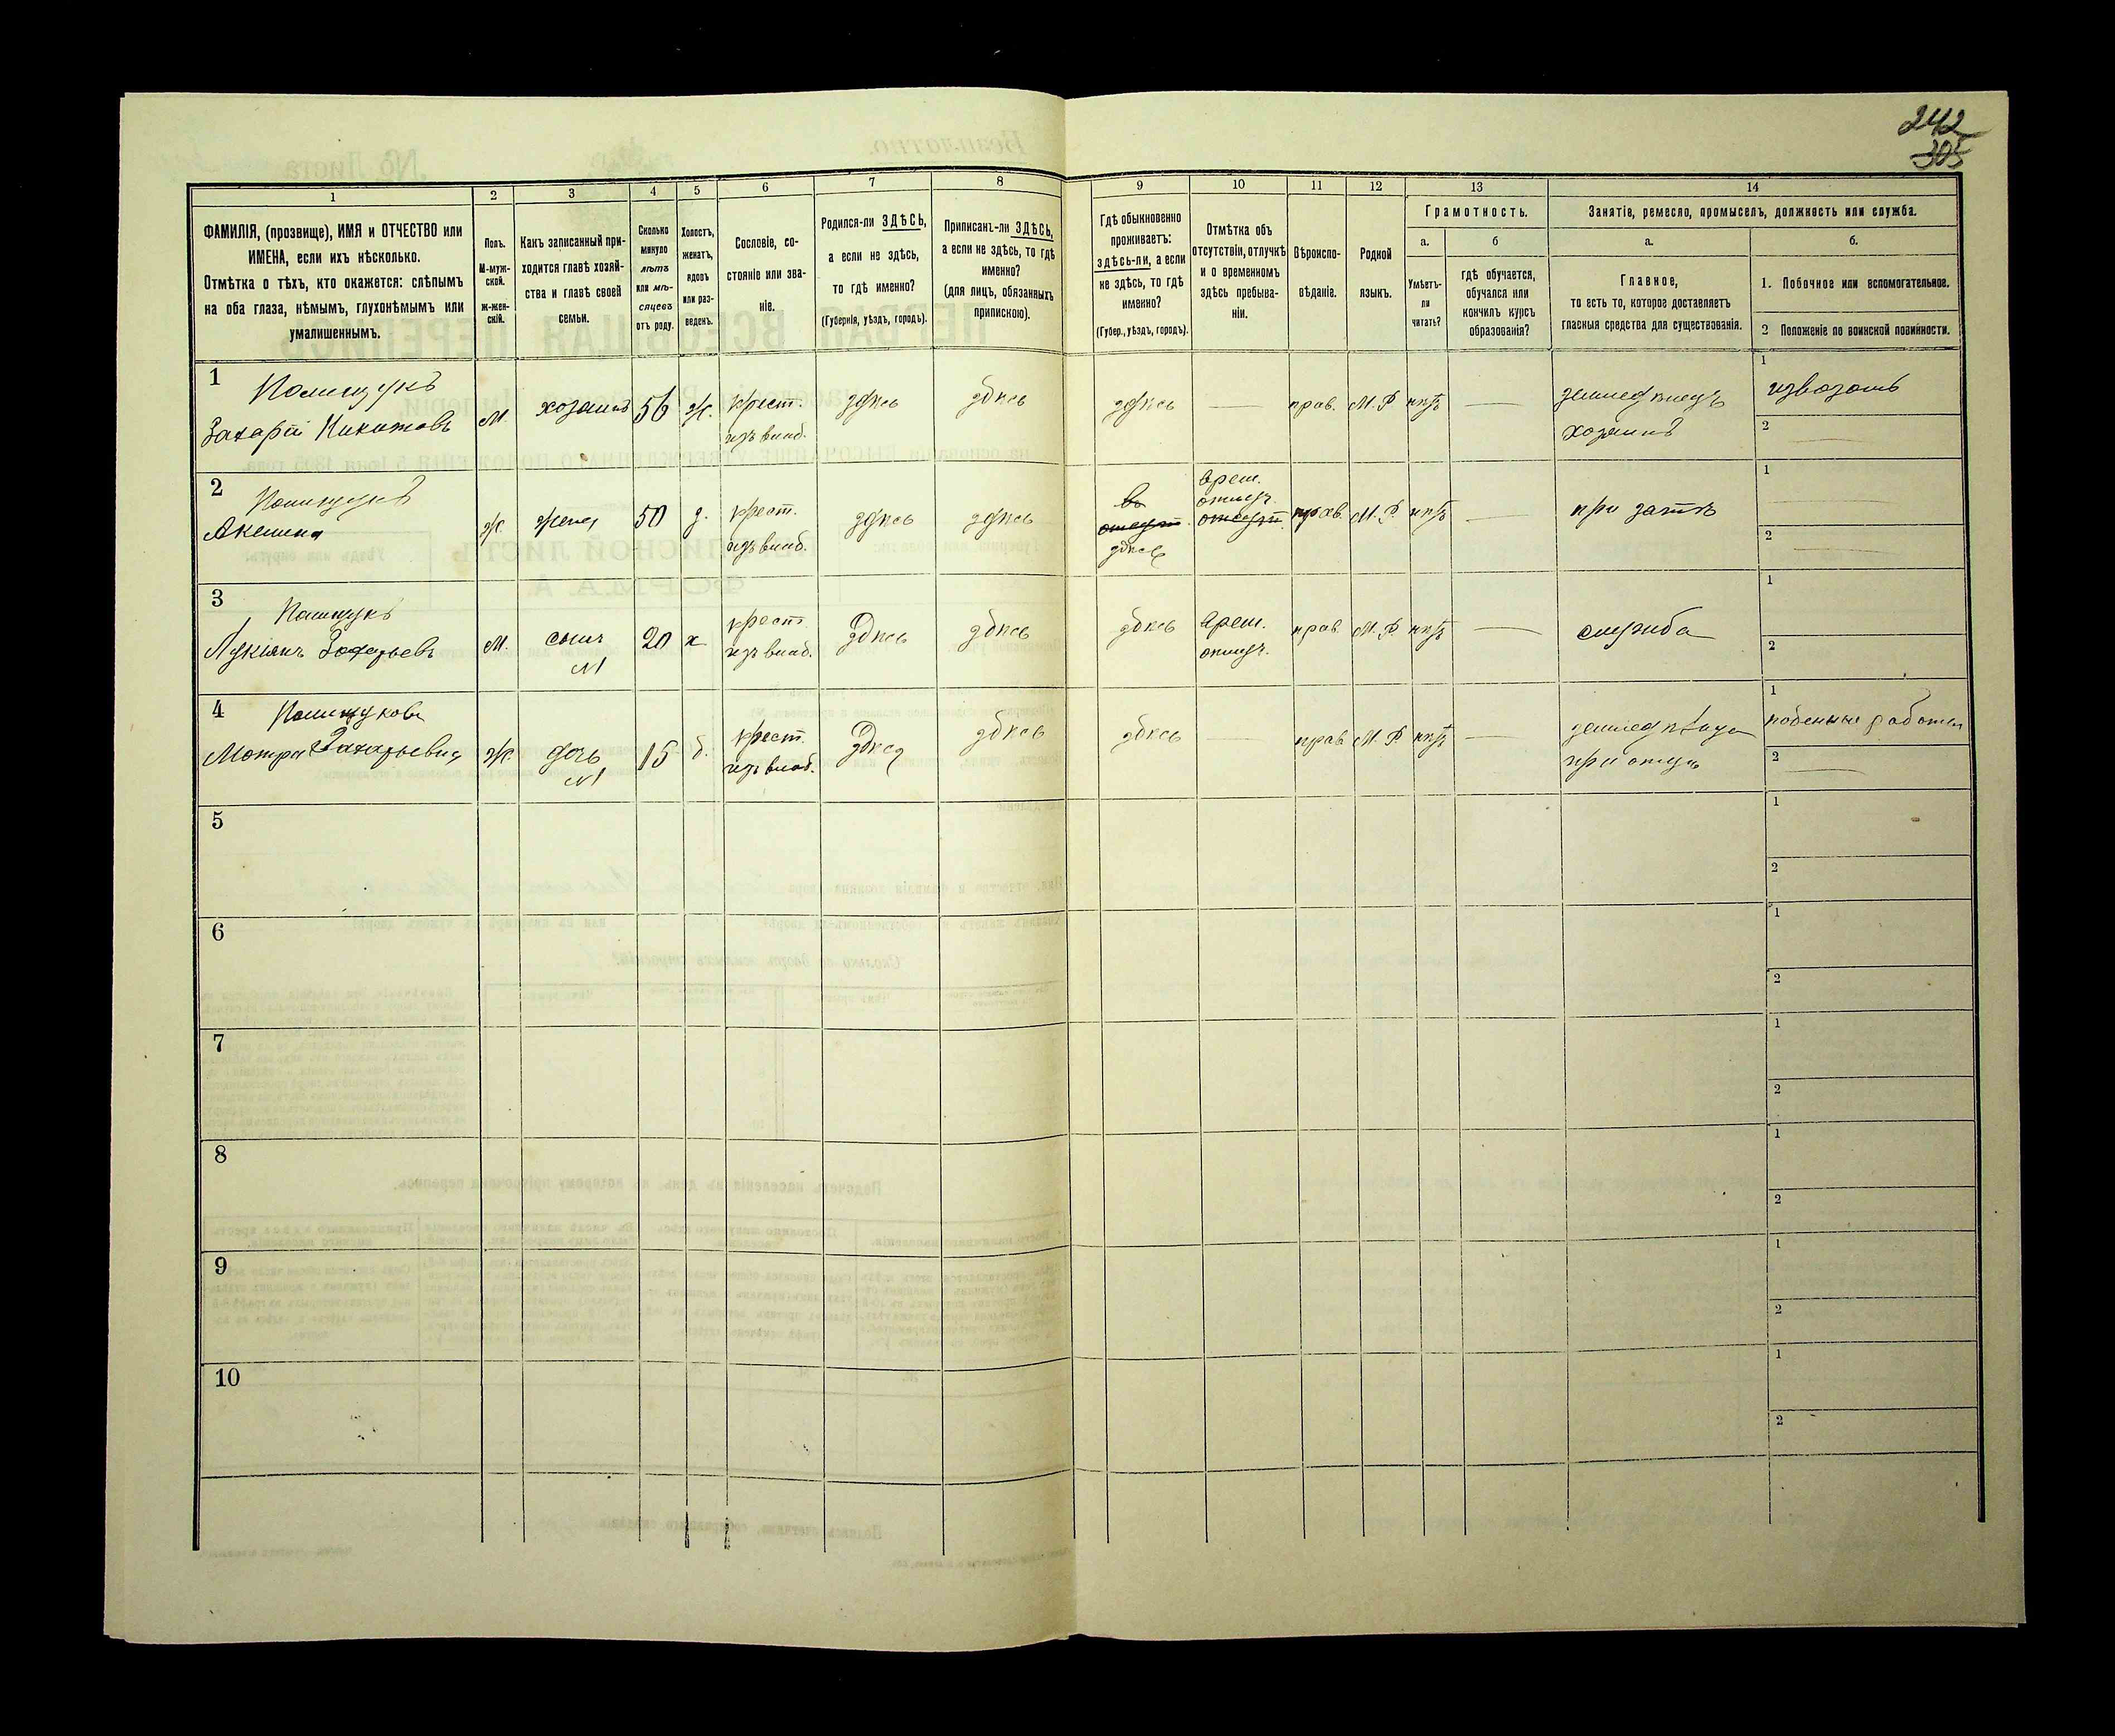 242
305
1
2
3
4
5
6
7
8
9
10
11
12
13
14
ФАМИЛІЯ, (прозвище), ИМЯ и ОТЧЕСТВО или
ИМЕНА, если ихъ нѣсколько.
Отмѣтка о тѣхъ, кто окажется: слѣпымъ
на оба глаза, нѣмымъ, глухонѣмымъ или
умалишеннымъ.
Полъ.
М-муж-
ской.
ж-жен-
скій.
Какъ записанный при-
ходится главѣ хозяй-
ства и главѣ своей
семьи.
Сколько
минуло
лѣтъ
или мѣ-
сяцевъ
отъ роду.
Холостъ,
женатъ,
вдовъ
или раз-
веденъ.
Сословіе, со-
стояніе или зва-
ніе.
Родился-ли ЗДѢСЬ,
а если не здѣсь,
то гдѣ именно?
(Губернія, уѣздъ, городъ).
Приписанъ-ли ЗДѢСЬ,
а если не здѣсь, то гдѣ
именно?
(для лицъ, обязанныхъ
припискою).
Гдѣ обыкновенно
проживаетъ:
здѣсь-ли, а если
не здѣсь, то гдѣ
именно?
(Губер., уѣздъ, городъ).
Отмѣтка объ
отсутствіи, отлучкѣ
и о временномъ
здѣсь пребыва-
ніи.
Вѣроиспо-
вѣданіе.
Родной
языкъ.
Грамотность.
а.
б
Умѣетъ-
ли
читать?
гдѣ обучается,
обучался или
кончилъ курсъ
образованія?
Занятіе, ремесло, промыселъ, должность или служба.
а.
б.
Главное,
то есть то, которое доставляетъ
главныя средства для существованія.
1. Побочное или вспомогательное.
2 Положеніе по воинской повинности.
1
Полищукъ
Захарій Никитовъ
М.
хозяинъ
56
ж.
крест.
изъ влад.
здѣсь
здѣсь
здѣсь
прав.
М. Р.
нѣтъ
земледѣлецъ
хозяинъ
1
извозомъ
2
2
Полищукъ
Акелина
ж.
жена
50
з.
крест.
изъ влад.
здѣсь
здѣсь
здѣсь
врем.
отлуч.
прав.
М. Р.
нѣтъ
при зятѣ
1
2
3
Полищукъ
Лукіянъ Захарьевъ
М.
сынъ
№1
20
х
крест.
изъ влад.
здѣсь
здѣсь
здѣсь
врем.
отлуч.
прав.
М. Р.
нѣтъ
служба
1
2
4
Полищукова
Мотря Захарьевна
ж.
дочь
№1
15
д.
крест.
изъ влад.
здѣсь
здѣсь
здѣсь
прав
М. Р.
нѣтъ
при отцѣ
1
2
5
1
2
6
1
2
7
1
2
8
1
2
9
1
2
10
1
2